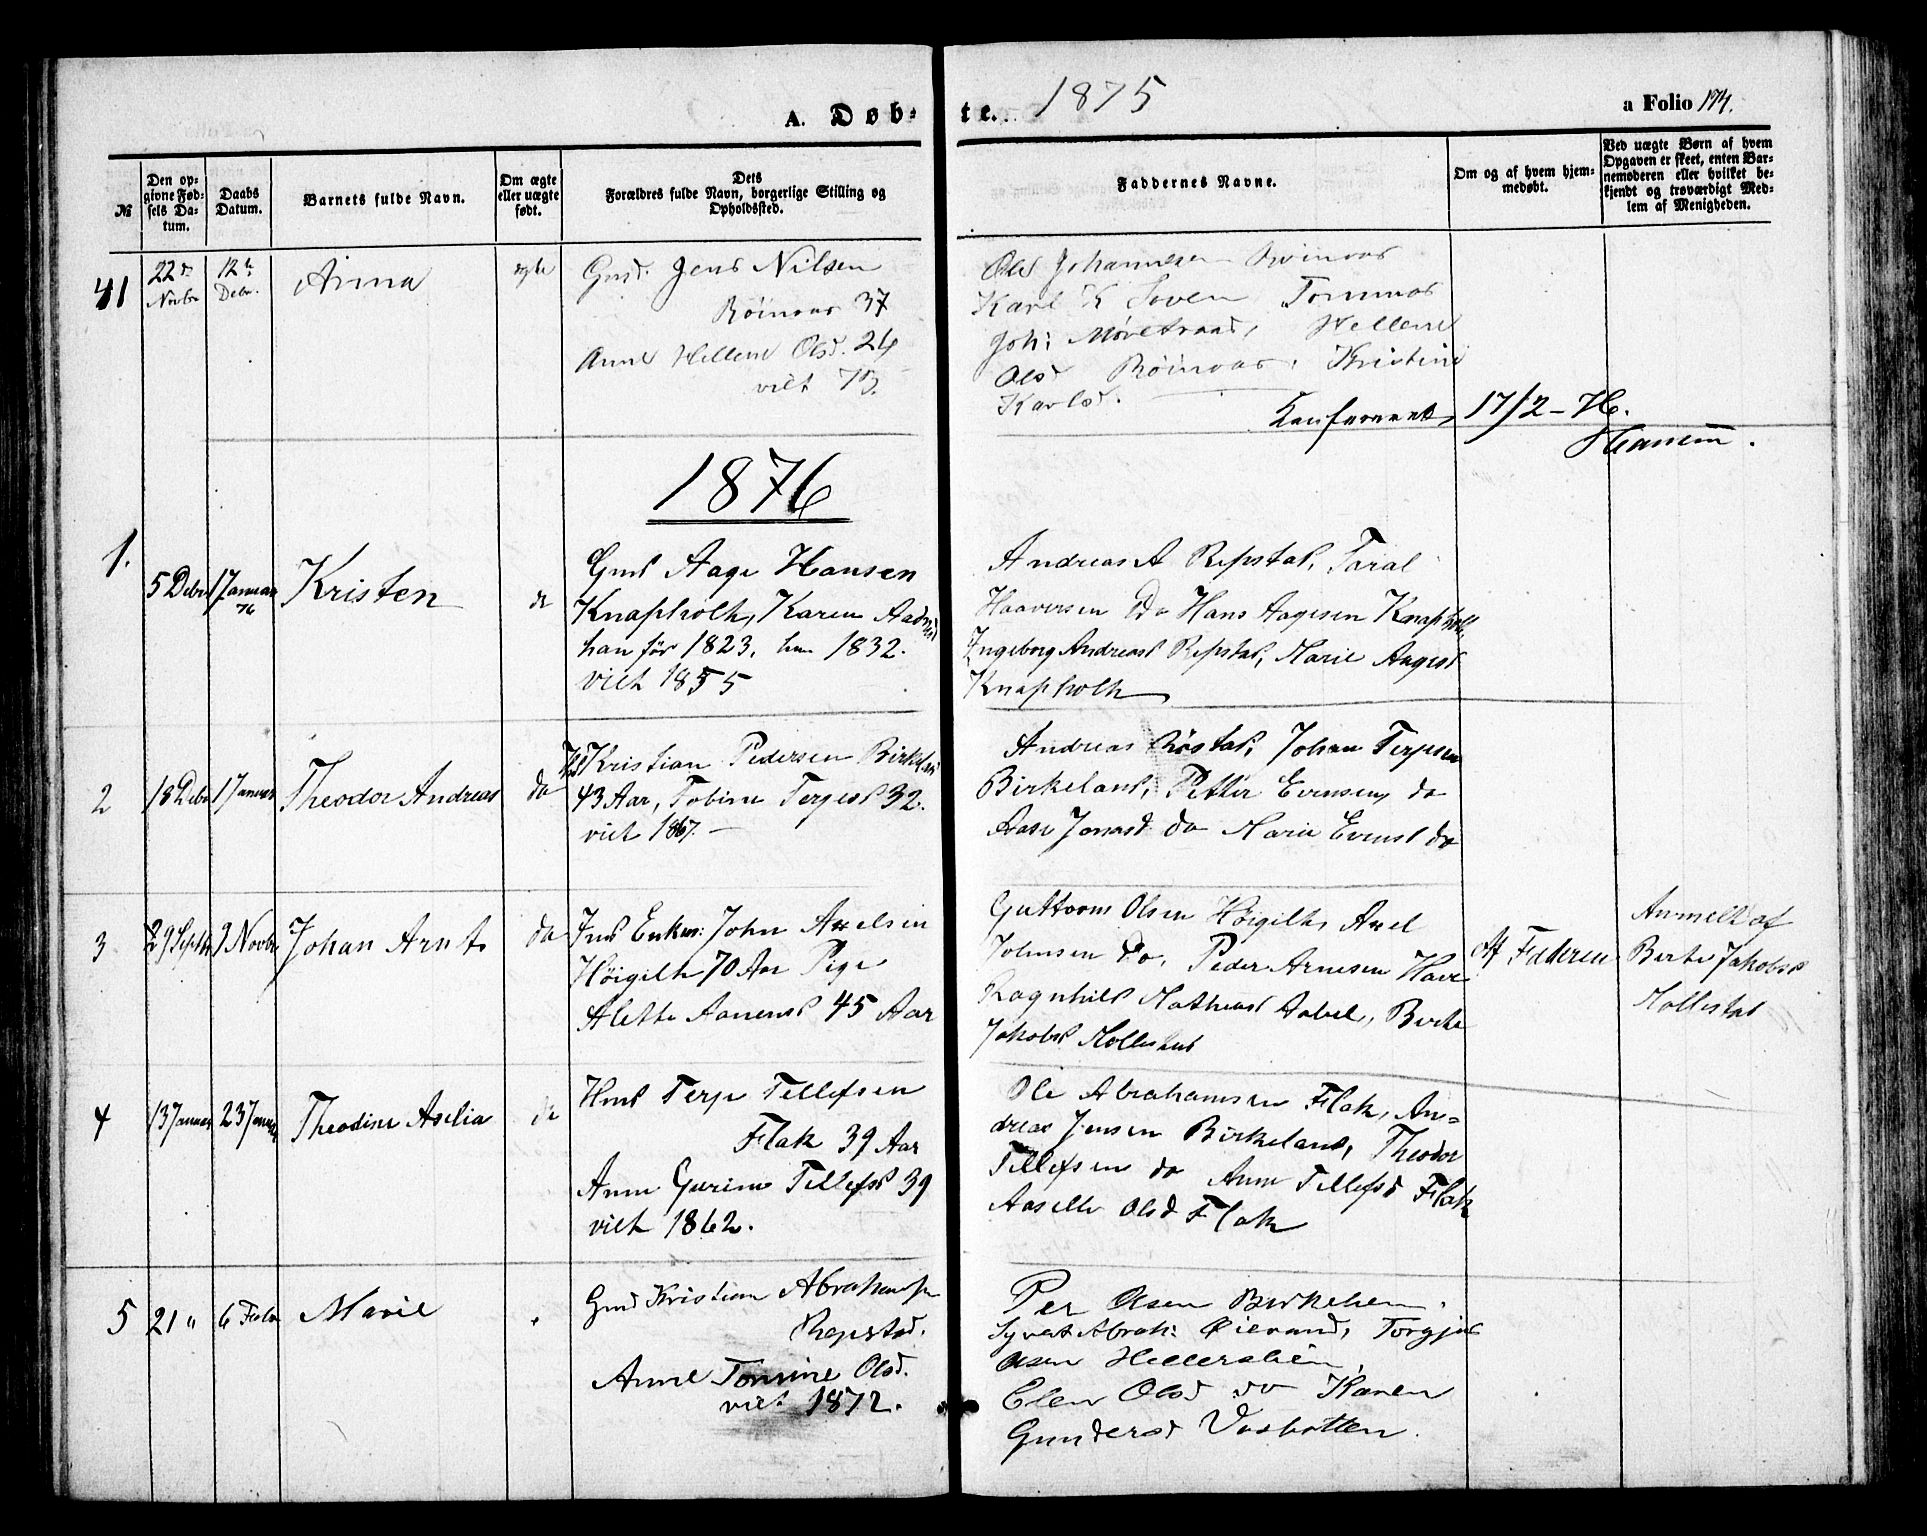 A. Døb-
te.
1875
a Folio 174.
№
Den op-
givne Fød-
sels Da-
tum.
Daabs
Datum.
Barnets fulde Navn.
Om ægte
eller uægte
født.
Dets
Forældres fulde Navn, borgerlige Stilling og
Opholdssted.
Faddernes Navne.
Om og af hvem hjem-
medøbt.
Ved uægte Børn af hvem
Opgaven er skeet, enten Bar-
nemoderen eller hvilket be-
kjendt og troværdigt Med-
lem af Menigheden.
41
22d
Novbr
12te
Debr.
Anna
ægte
Gmd. Jens Nilsen
Röinaas 37
Anne Hellene Olsd. 24
viet 75.
Ole Johannesen Röinaas
Karl K Loven Tommas
Joh: Mövetraad, Hellene
Olsd Röinaas, Kristine
Karlsd.
Konfereret 17/2-76.
Hansen.
1876
1.
5 Debr
1 Januar
76
Kristen
do
Gmd Aage Hansen
Knapholt, Karen Aadnesd
han för 1823, hun 1832.
viet 1855
Andreas A Repstad, Taral
Haaversen Do Hans Aagesen Knapholt
Ingeborg Andreasd Repstad, Marie Aagesd
Knapholt
2
18 Debr
1 Januar
Theodor Andreas
do
Kristian Pedersen Birkeland
43 Aar, Tobine Terjesd 32.
viet 1867.
Andreas Röstad, Johan Terjesen
Birkeland, Petter Evensen do
Aase Jonasd do Marie Evensd do
3
29 Septbr
3 Novbr
Johan Arnt
do
Inds Enkem: John Axelsen
Höigilt 70 Aar Pige
Alette Aanensd 45 Aar
Guttorm Olsen Höigilt, Axel
Johnsen Do, Peder Arnesen Have
Ragnhild Mathiasd Aabel, Berte
Jakobsd Mollestad
Af Faderen
Anmeldt af
Berte Jakobsd
Mollestad
4
13 Januar
23 Januar
Theodine Aselia
do
Hmd Terje Tellefsen
Flak 39 Aar
Anne Gurine Tellefsd 39
viet 1862.
Ole Abrahamsen Flak, An-
dreas Jensen Birkeland, Theodor
Tellefsen do Anne Tellefsd Flak
Aaselle Olsd Flak
5
21 "
6 Febr
Marie
"
Gmd Kristian Abrahamsen
Repstad.
Anne Tomine Olsd.
viet 1872.
Per Olsen Birkehem.
Syvert Abrah: Øievand, Torgjus
Olsen Hellerslien,
Elen Olsd do Karen
Gundersd Vasbotten.